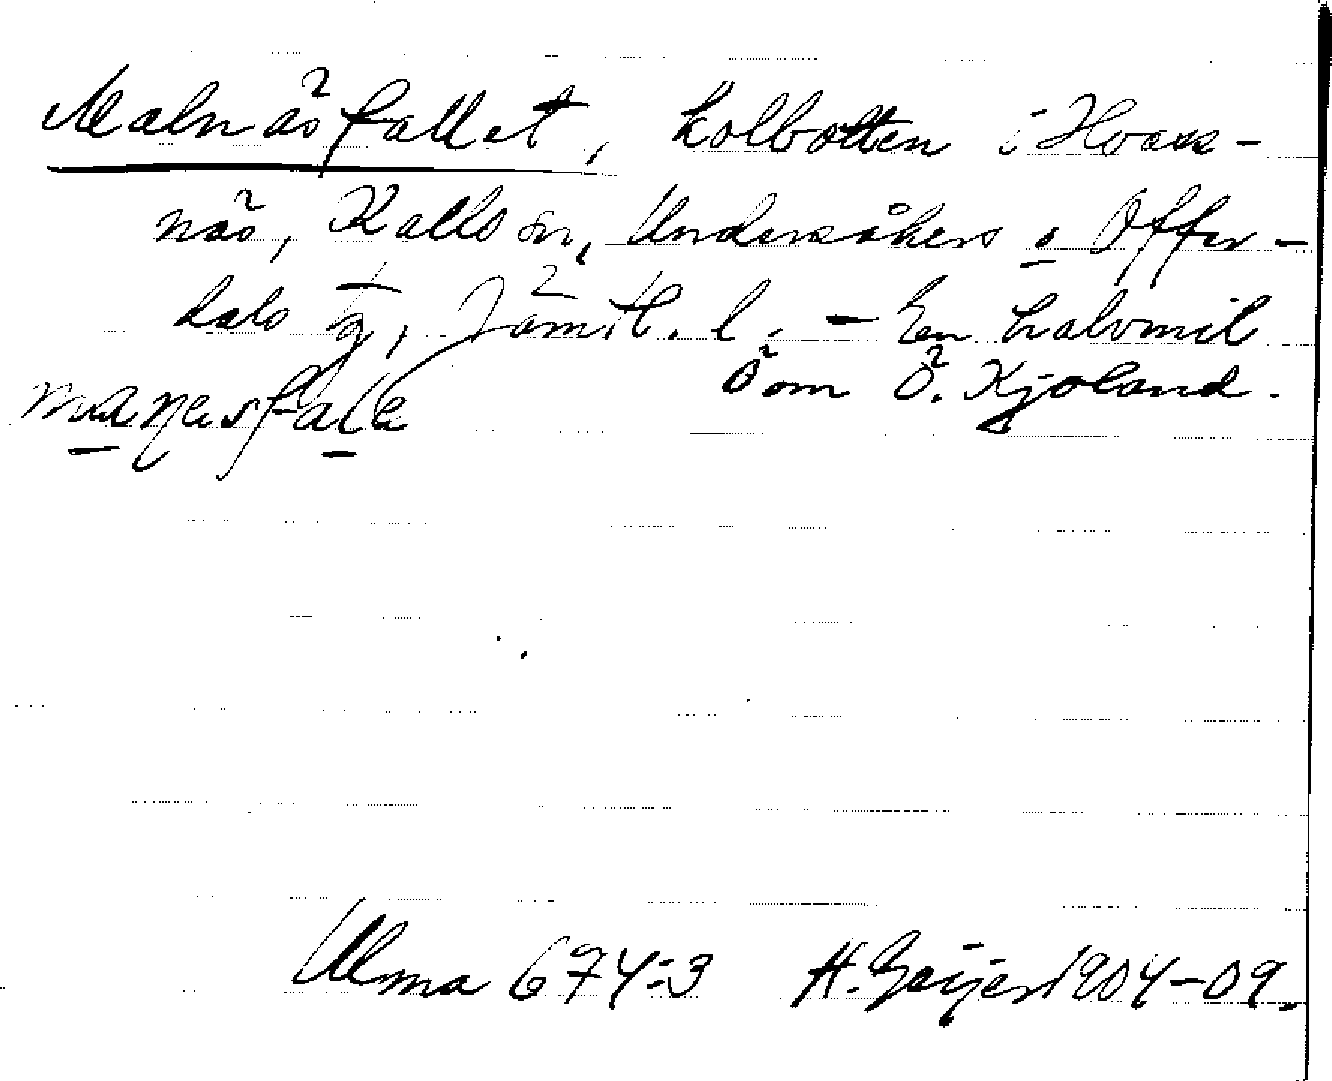 Malnäsfallet, holbotten i Hvass-
näs, Kalls sn, Undersåkers o Offer-
dals tg, Jämtl. l. – En halvmil
ö om Ö. Kjoland.
Ulma 674:3 H. Geijer 1904–09.